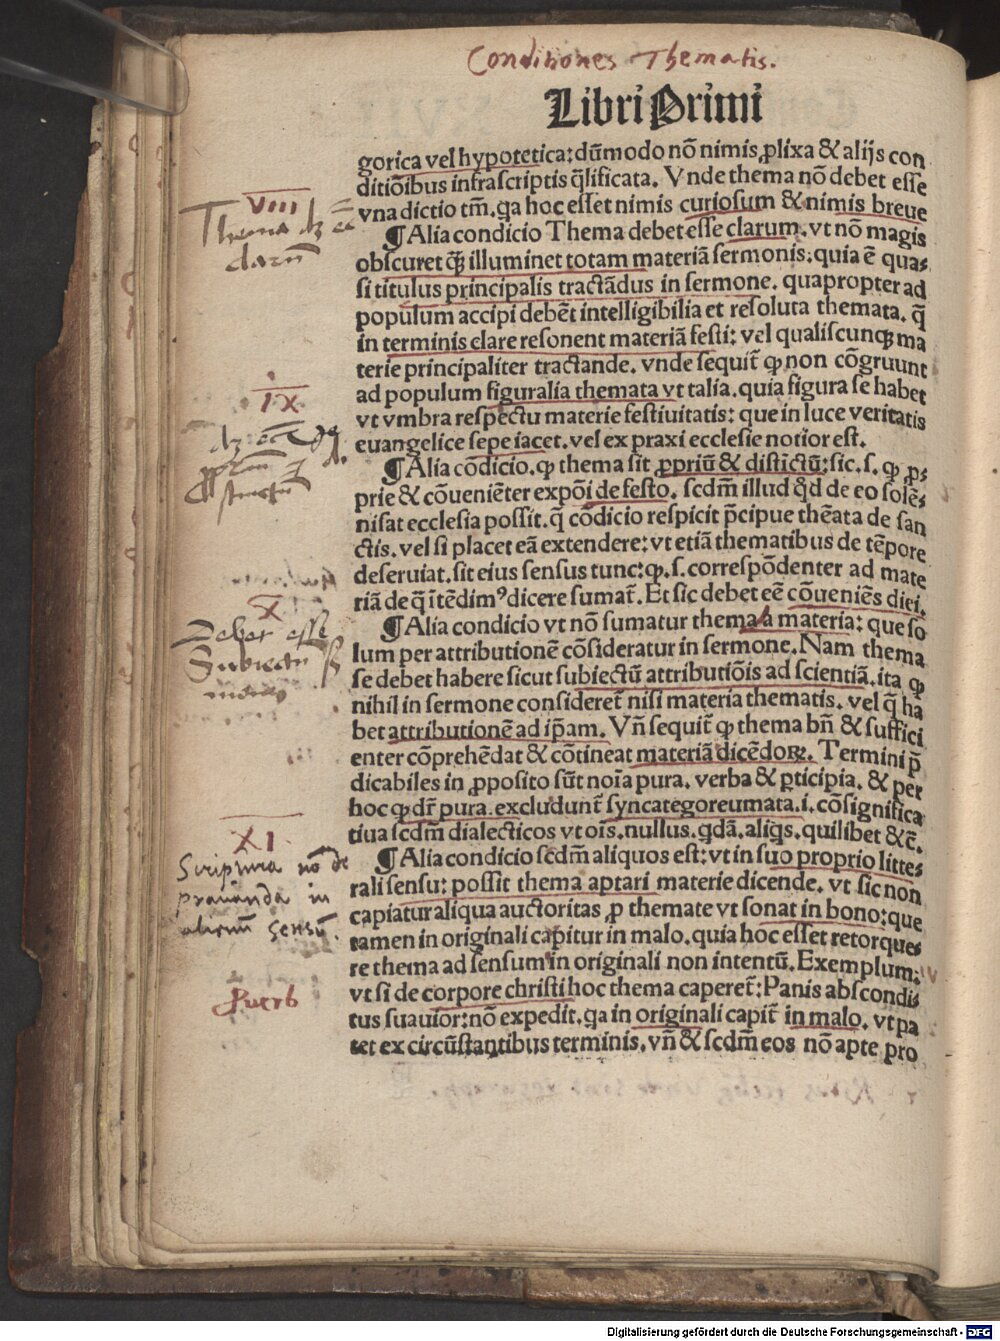 Conditiones Thematis.
Libri Primi
gorica vel hypotetica: dūmodo nō nimis ꝓlixa & alijs con
ditiōibus infrascriptis q̄lificata. Vnde thema nō debet esse
vna dictio tm̄. qa hoc esset nimis curiosum & nimis breue
¶Alia condicio Thema debet esse clarum. vt nō magis
obscuret qꝫ illuminet totam materiā sermonis: quia ē qua⸗
si titulus principalis tractādus in sermone. quapropter ad
populum accipi debēt intelligibilia et resoluta themata. q̄
in terminis clare resonent materiā festi: vel qualiscunqꝫ ma
terie principaliter tractande. vnde sequit̄ ꝙ non cōgruunt
ad populum figuralia themata vt talia. quia figura se habet
vt vmbra respectu materie festiuitatis: que in luce veritatis
euangelice sepe iacet. vel ex praxi ecclesie notior est.
¶Alia cōdicio. ꝙ thema sit ꝓpriū & distictū: sic. s. ꝙ ꝓ⸗
prie & cōueniēter expōi de festo. scdm̄ illud qd̄ de eo solē⸗
nisat ecclesia possit. q̄ cōdicio respicit p̄cipue thēata de san
ctis. vel si placet eā extendere: vt etiā thematibus de tēpore
deseruiat. sit eius sensus tunc: ꝙ. s. correspōdenter ad mate
riā de q̄ ītēdimꝰ dicere sumat̄. Et sic debet eē cōueniēs diei.
¶Alia condicio vt nō sumatur thema a materia: que so
lum per attributionē cōsideratur in sermone. Nam thema
se debet habere sicut subiectū attributiōis ad scientiā. ita ꝙ
nihil in sermone consideret̄ nisi materia thematis. vel q̄ ha
bet attributionē ad ip̄am. Vn̄ sequit̄ ꝙ thema bn̄ & suffici
enter cōprehēdat & cōtineat materiā dicēdoꝝ. Termini p̄
dicabiles in ꝓposito sūt noīa pura. verba & ꝑticipia. & per
hoc ꝙ dr̄ pura. excludunt̄ syncategoreumata. i. cōsignifica
tiua scdm̄ dialecticos vt ois. nullus. qdā. aliqs. quilibet &c̄.
¶Alia condicio scdm̄ aliquos est: vt in suo proprio litte⸗
rali sensu: possit thema aptari materie dicende. vt sic non
capiatur aliqua auctoritas ꝓ themate vt sonat in bono: que
tamen in originali capitur in malo. quia hoc esset retorque⸗
re thema ad sensum in originali non intentū. Exemplum:
vt si de corpore christi hoc thema caperet̄: Panis abscondi⸗
tus suauior: nō expedit. qa in originali capit̄ in malo. vt pa
tet ex circūstantibus terminis. vn̄ & scdm̄ eos nō apte pro
VIII
Thema dꝫ eē
clarū
IX
X
Debet esse
Subiectū
XI
Scriptura nō de
prauanda in
alienū sensū.
Puerb
Digitalisierung gefördert durch die Deutsche Forschungsgemeinschaft - DFG